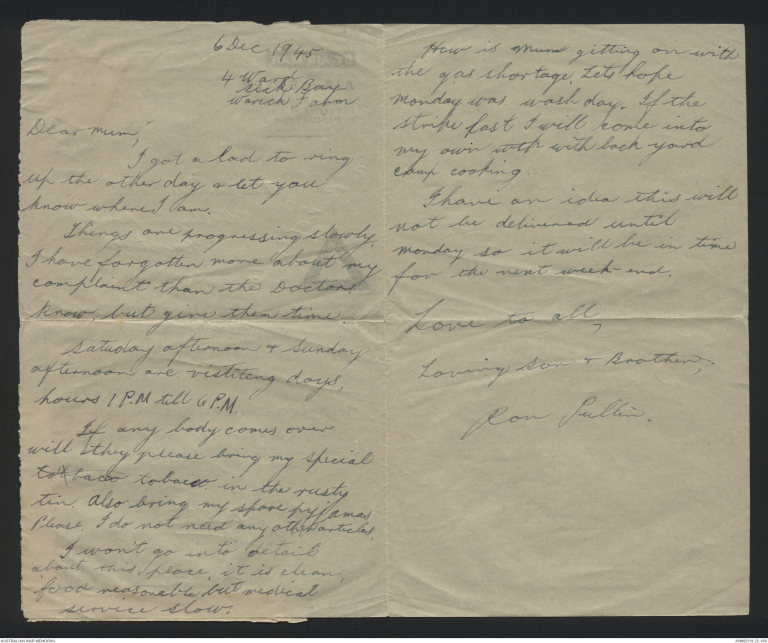 6 Dec. 1945
4 Ward
Sick Bay
Warwick Farm
Dear Mum,
I got a lad to ring
up the other day & let you
know where I am.
Things are progressing slowly.
I have forgotten more about my
complaint than the Doctors
know, but give them time.
Satuday afternoon & Sunday
afternoon are visiting days,
hours 1 P.M till 6 P.M.
If any body comes over
will they please bring my special
tobbaco tobacco in the rusty
tin. Also bring my spare pyjamas
Please, I do not need any other articles.
I won't go into detail
about this place, it is clean,
food reasonable, but medical
service slow.
How is Mum gitting on with
the gas shortage. Lets hope
Monday was wash day. If the
strike last I will come into
my own with with back yard
camp cooking.
I have an idea this will
not be delivered until
Monday so it will be in time
for the next week-end.
Love to all,
Loving Son & Brother,
Ron Pullin.
AUSTRALIAN WAR MEMORIAL